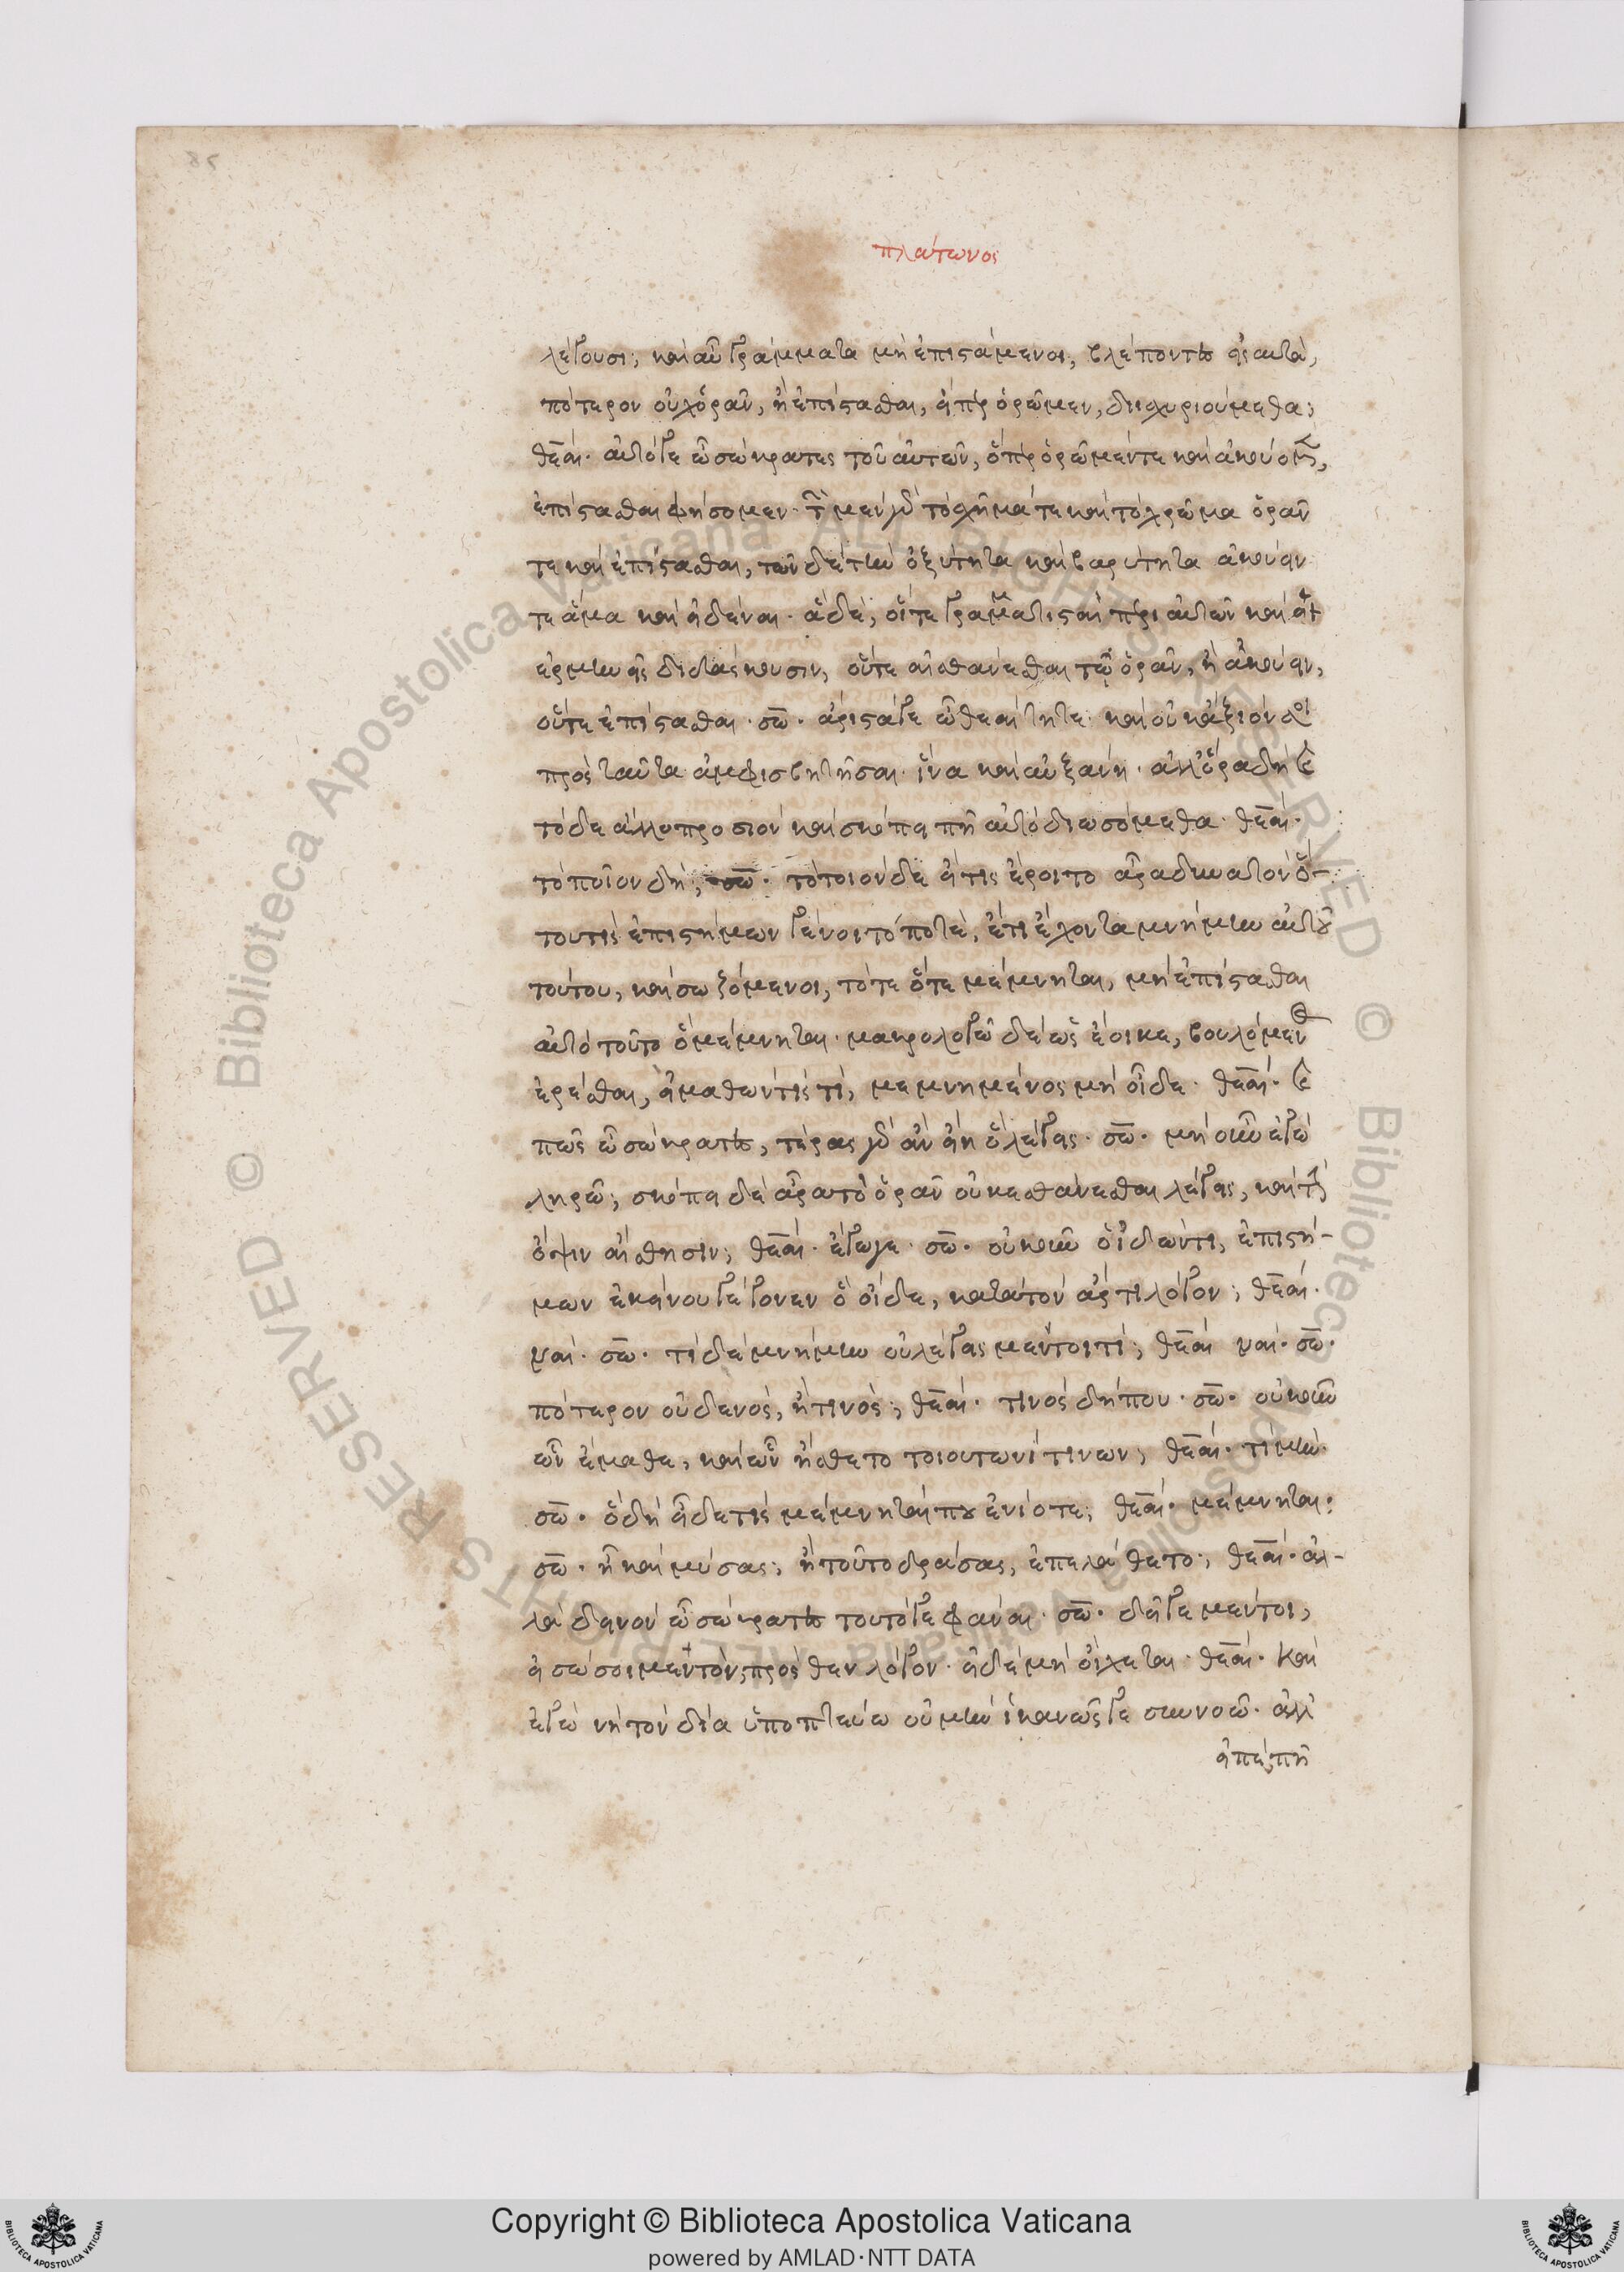 85
πλάτωνος
λέγουσι; καὶ αὖ γράμματα μὴ ἐπιστάμενοι, βλέποντες εἰς αὐτὰ,
πότερον οὐχ ὁρᾶν, ἢ ἐπίστασθαι, εἴπερ ὁρῶμεν, διισχυριούμεθα;
θεαί. αὐτό γε ὦ σώκρατες τοῦ αὐτῶν, ὅπερ ὁρῶμέν τε καὶ ἀκούομεν,
ἐπίστασθαι φήσομεν. τῶν μὲν γὰρ τὸ σχῆμά τε καὶ τὸ χρῶμα ὁρᾶν
τε καὶ ἐπίστασθαι, τῶν δὲ τὴν ὀξύτητα καὶ βαρύτητα ἀκούειν
τε ἅμα καὶ εἰδέναι. ἃ δέ, οἵ τε γραμματισταὶ περὶ αὐτῶν καὶ οἱ
ἑρμηνεῖς διδάσκουσιν, οὔτε αἰσθάνεσθαι τῷ ὁρᾶν, ἢ ἀκούειν,
οὔτε ἐπίστασθαι. σω. ἄριστά γε ὦ θεαίτητε. καὶ οὐκ ἄξιόν σοι
πρὸς ταῦτα ἀμφισβητῆσαι. ἵνα καὶ αὐξάνῃ. ἀλλ' ὅρα δὴ καὶ
τόδε ἄλλο προσιὸν καὶ σκόπει πῇ αὐτὸ διωσόμεθα. θεαί.
τὸ ποῖον δή; σω. τὸ τοιόνδε εἴ τις ἔροιτο ἆρα δυνατὸν ὅ-
του τις ἐπιστήμων γένοιτό ποτε, ἔτι ἔχοντα μνήμην αὐτοῦ
τούτου, καὶ σωζόμενοι, τότε ὅτε μέμνηται, μὴ ἐπίστασθαι
αὐτὸ τοῦτο ὃ μέμνηται. μακρολογῶ δὲ ὡς ἔοικε, βουλόμενος
ἐρέσθαι, εἰ μαθών τίς τι, μεμνημένος μὴ οἶδε. θεαί. καὶ
πῶς ὦ σώκρατες, τέρας γὰρ ἂν εἴη ὃ λέγεις. σω. μὴ οὖν ἐγὼ
ληρῶ; σκόπει δὲ ἆρα τὸ ὁρᾶν οὐκ αἰσθάνεσθαι λέγεις, καὶ τὴν
ὄψιν αἴσθησιν; θεαί. ἔγωγε. σω. οὐκοῦν ὁ ἰδών τι, ἐπιστή-
μων ἐκείνου γέγονεν ὃ οἶδε, κατὰ τὸν ἄρτι λόγον; θεαί.
ναί. σω. τί δὲ μνήμην οὐ λέγεις μέντοι τί; θεαί ναί. σω.
πότερον οὐδενὸς, ἤ τινός; θεαί. τινὸς δήπου. σω. οὐκοῦν
ὧν ἔμαθε, καὶ ὧν ᾔσθετο τοιουτωνί τινων; θεαί. τί μήν.
σω. ὃ δὴ εἶδέ τις μέμνηταί που ἐνίοτε; θεαί. μέμνηται.
σω. ἦ καὶ μύσας; ἢ τοῦτο δράσας, ἐπελάθετο; θεαί. ἀλ-
λὰ δεινὸν ὦ σώκρατες τοῦτό γε φάναι. σω. δεῖ γε μέντοι,
εἰ σώσοιμεν τὸν πρόσθεν λόγον. εἰ δὲ μὴ οἴχεται. θεαί. Καὶ
ἐγὼ νὴ τὸν δία ὑποπτεύω οὐ μὴν ἱκανῶς γε συννοῶ. ἀλλ'
εἰπὲ πῇ
Copyright © Biblioteca Apostolica Vaticana
powered by AMLAD·NTT DATA